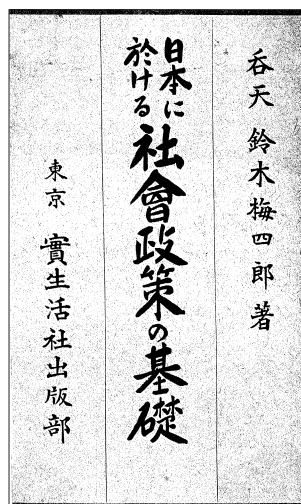 呑天 鈴木梅四郎著
日本に於ける社會政策の基礎
東京 實生活社出版部